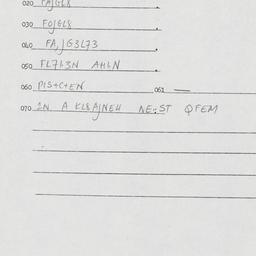 020 FAJGL8
030 FOJGL8
040 FA,JG3L73
050 FL7L3N AHLN
060 PIS+C+EN 061 —
070 2N A KL8AJNEH NE:ST QFEM